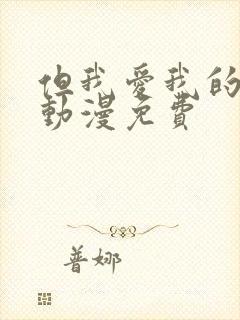 但我愛我的
動漫免費
普娜